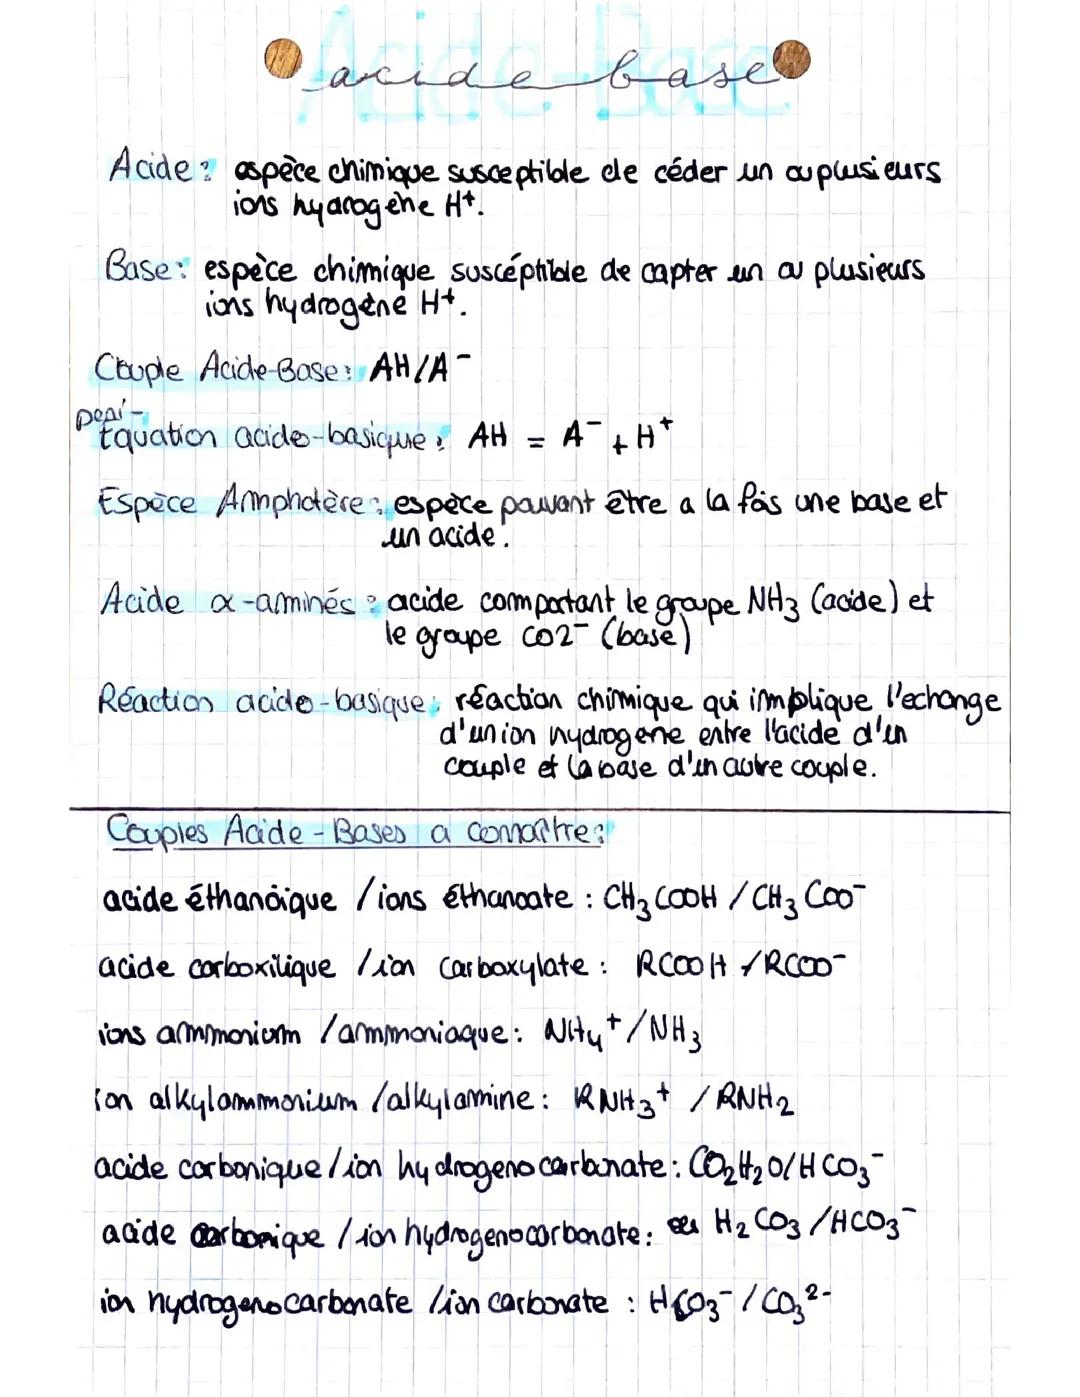 acide base
Acide : espèce chimique susceptible de céder un ou plusieurs
ions hydrogène H⁺.
Base : espèce chimique suscéptible de capter un ou plusieurs
ions hydrogène H⁺.
Couple Acide-Base : AH/A⁻
Demi-
Equation acido-basique : AH = A⁻ + H⁺
Espèce Amphotère : espèce pouvant être a la fois une base et
un acide.
Acide α-aminés : acide comportant le groupe NH3 (acide) et
le groupe CO2⁻ (base)
Réaction acido-basique : réaction chimique qui implique l'echange
d'un ion hydrogene entre l'acide d'un
couple et la base d'un autre couple.
Couples Acide-Bases a connaître :
acide éthanöique / ions éthanoate : CH₃COOH / CH₃COO⁻
acide carboxilique / ion carboxylate : RCOOH / RCOO⁻
ions ammonium / ammoniaque : NH₄⁺ / NH₃
ion alkylammonium / alkylamine : RNH₃⁺ / RNH₂
acide carbonique / ion hydrogenocarbonate : CO₂H₂O / HCO₃⁻
acide carbonique / ion hydrogenocarbonate : H₂CO₃ / HCO₃⁻
ion hydrogenocarbonate / ion carbonate : HCO₃⁻ / CO₃²⁻